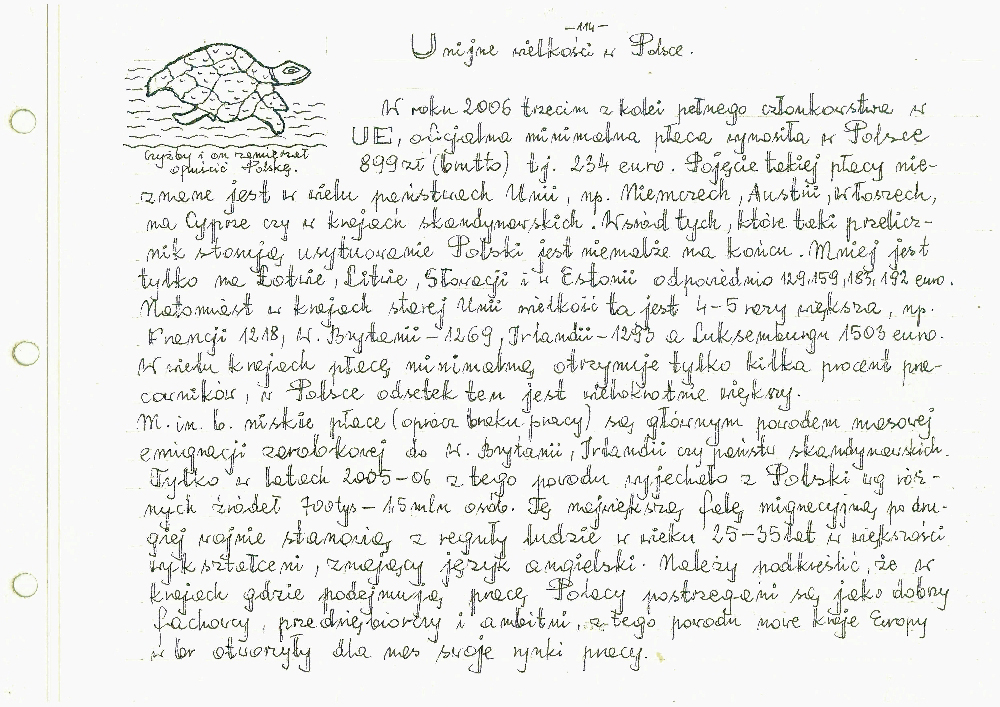 -114-
Unijne wielkości w Polsce.
W roku 2006 trzecim z kolei pełnego członkowstwa w
UE, oficjalna minimalna płaca wynosiła w Polsce
899 zł (brutto) tj. 234 euro. Pojęcie takiej płacy nie-
czyżby i on zamierzał
opuścić Polskę.
znane jest w wielu państwach Unii, np. Niemczech, Austrii, Włoszech,
na Cyprze czy w krajach skandynawskich. Wśród tych, które taki przelicz-
nik stosują usytuowanie Polski jest niemalże na końcu. Mniej jest
tylko na Łotwie, Litwie, Słowacji i w Estonii odpowiednio 129, 159, 183, 192 euro.
Natomiast w krajach starej Unii wielkość ta jest 4-5 razy większa, np.
Francji 1218, W. Brytanii - 1269, Irlandii - 1293 a Luksemburgu 1503 euro.
W wielu krajach płacę minimalną otrzymuje tylko kilka procent pra-
cowników, w Polsce odsetek ten jest wielokrotnie większy.
M. in. b. niskie płace (oprócz braku pracy) są głównym powodem masowej
emigracji zarobkowej do W. Brytanii, Irlandii czy państw skandynawskich.
Tylko w latach 2005-06 z tego powodu wyjechało z Polski wg róż-
nych źródeł 700 tys - 1,5 mln osób. Tę największą falę migracyjną po dru-
giej wojnie stanowią z reguły ludzie w wieku 25-35 lat w większości
wykształceni, znający język angielski. Należy podkreślić, że w
krajach gdzie podejmują pracę Polacy postrzegani są jako dobrzy
fachowcy, przedsiębiorczy i ambitni, z tego powodu nowe kraje Europy
w br otworzyły dla nas swoje rynki pracy.